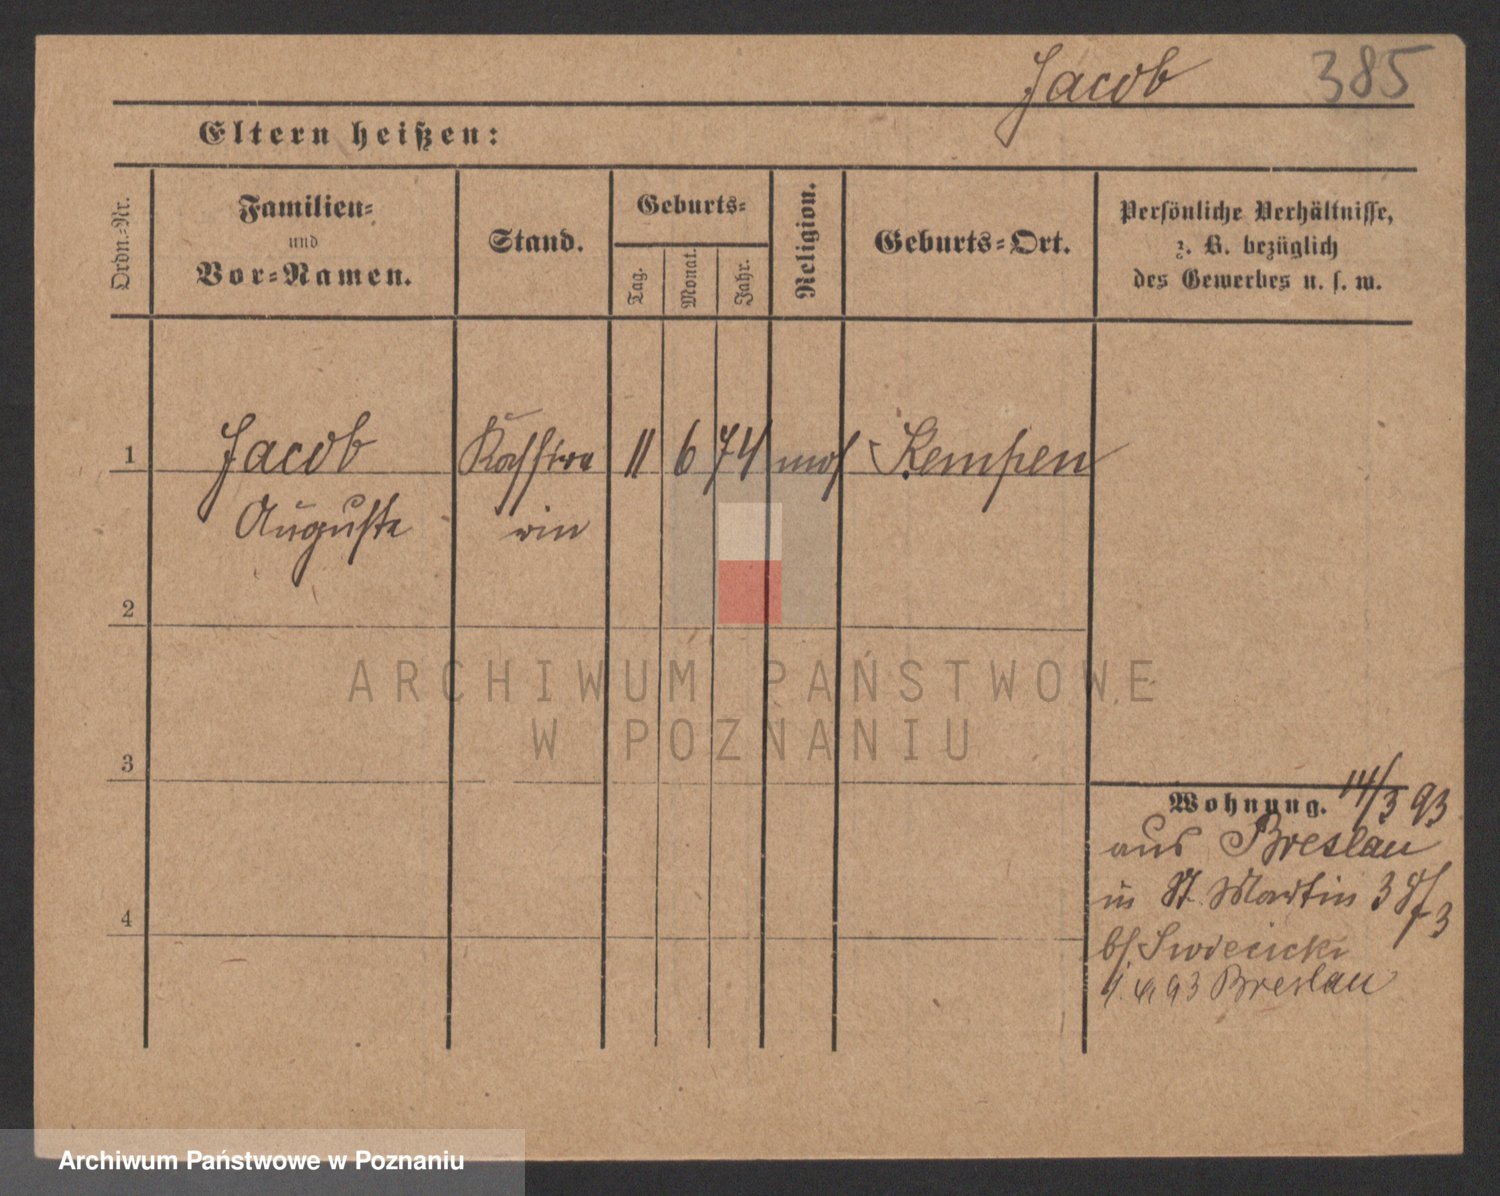 Jacob 385
Eltern heißen:
Ordn.-Nr.
Familien-
und
Vor-Namen.
Stand.
Geburts-
Tag.
Monat.
Jahr.
Religion.
Geburts-Ort.
Persönliche Verhältnisse,
z. B. bezüglich
des Gewerbes u. s. w.
1 Jacob 11 6 74 mos Kempen
Auguste
2
3
4
Wohnung. 14/3 93
aus Breslau
in St. Martin 38
93 Breslau
ARCHIWUM PAŃSTWOWE
W POZNANIU
Archiwum Państwowe w Poznaniu